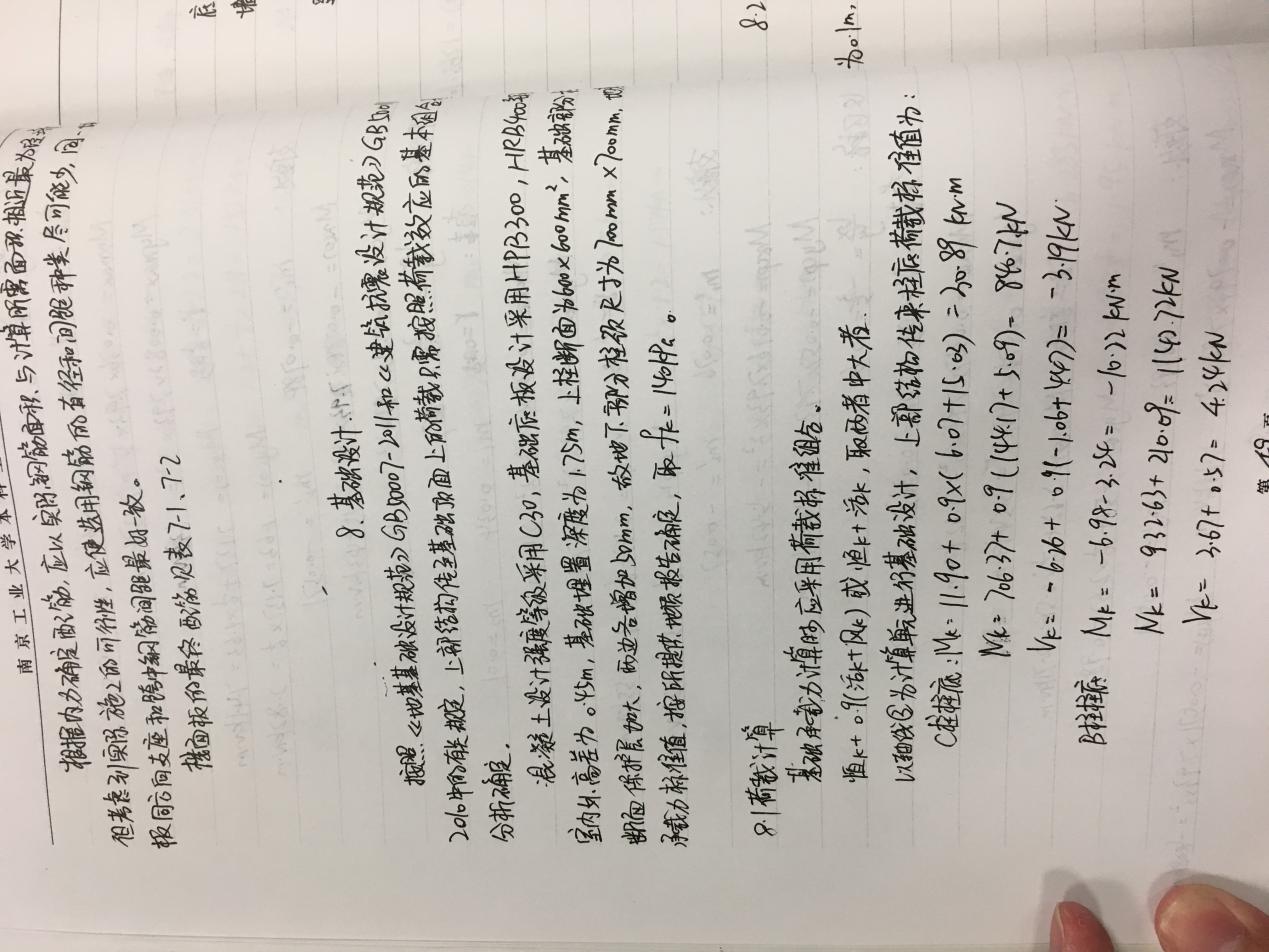 南京工业大学本科
根据内力确定配筋,应以实际钢筋面积与计算所需面积相近最为
但考虑到实际施工的可行性,应使选用钢筋的直径和间距种类尽可能少,同一
板同方向支座和跨中钢筋间距最好一致。
楼面板的最终配筋见表7-1、7-2
8. 基础设计
按照《地基基础设计规范》GB50007-2011和《建筑抗震设计规范》GB5001
2010中的有关规定,上部结构传至基础顶面上的荷载只需按照荷载效应的基本组合
分析确定。
混凝土设计强度等级采用C30,基础底板设计采用HPB300,HRB400
室内外高差为0.45m,基础埋置深度为1.75m,上柱断面为600×600mm²,基础部分
断面保护层加大,两边各增加50mm,故地下部分柱颈尺寸为700mm×700mm,地
承载力标准值,按所提供地质报告确定,取fk=140kPa。
8.1荷载计算
基础承载力计算时,应采用荷载标准组合。
恒k+0.9(活k+风k)或恒k+活k,取两者中大者.
以轴线⑥为计算单元进行基础设计,上部结构传来柱底荷载标准值为:
C柱柱底:Mk=11.90+0.9×(6.07+15.03)=30.89 kN·m
Nk=706.37+0.9(144.17+5.09)=846.7kN
Vk=-6.26+0.9(-1.06+4.47)=-3.19kN.
B柱柱底: Mk=-6.98-3.24=-10.22kN·m
Nk=932.63+210.09=1142.72kN
Vk=3.67+0.57=4.24kN
第 49 页
底
墙
8.2
为0.1m,